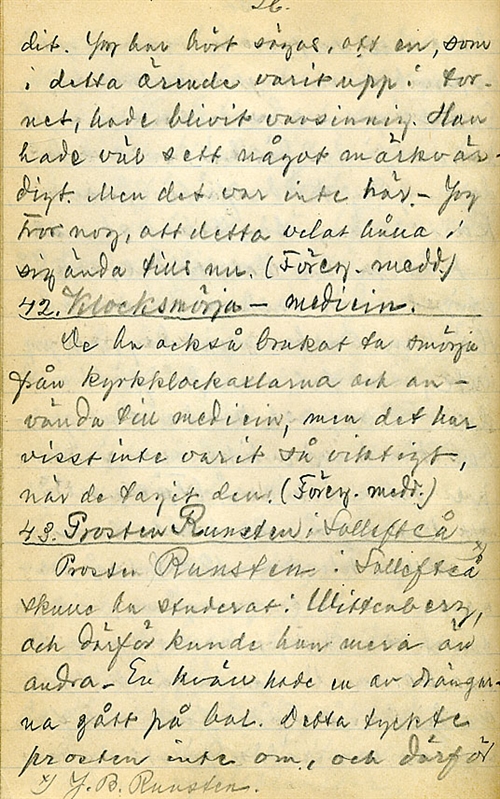 26.
dit. Jag har hört sägas, att en, som
i detta ärende varit uppi tor-
net, hade blivit vansinnig. Han
hade väl sett något märkvär-
digt. Men det var inte här. - Jag
tror nog, att detta velat hålla i
sig ända tills nu. (Föreg. medd.)
42. Klocksmörja - medicin.
De ha också brukat ta smörja
från kyrkklockaxlarna och an-
vända till medicin, men det har
visst inte varit så viktigt,
när de tagit den. (Föreg. medd.)
43. Prosten Runsten i Sollefteå
Prosten Runsten i Sollefteå x)
skulle ha studerat i Wittenberg,
och därför kunde han mera än
andra. - En kväll hade en av drängar-
na gått på bal. Detta tyckte
prosten inte om, och därför
x) J. B. Runsten.